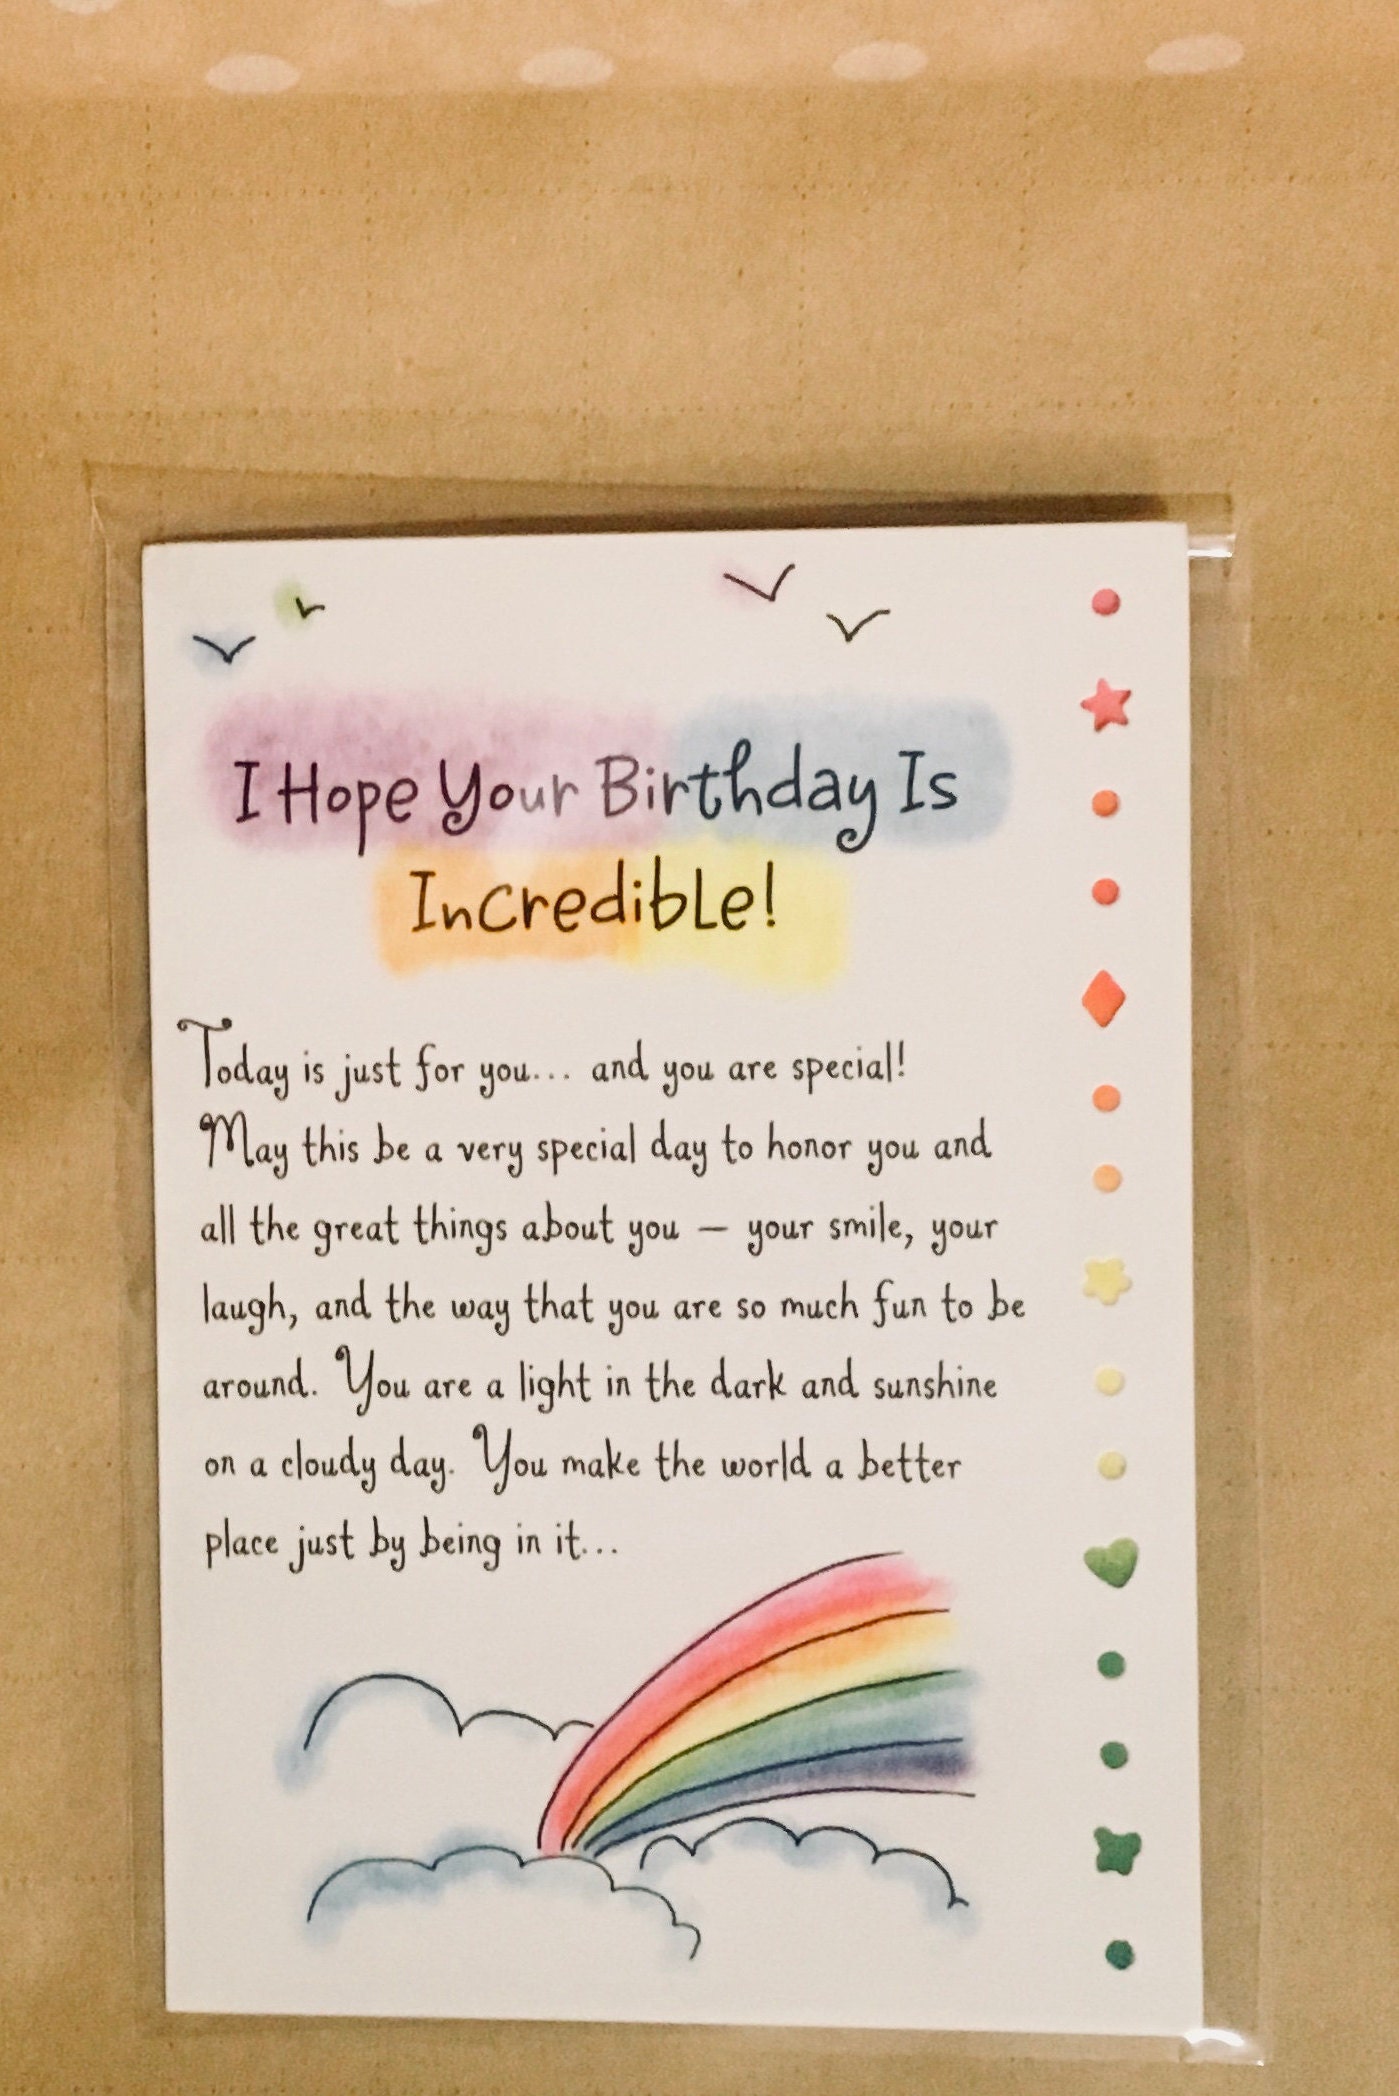 I Hope Your Birthday Is
Incredible!
Today is just for you... and you are special!
May this be a very special day to honor you and
all the great things about you — your smile, your
laugh, and the way that you are so much fun to be
around. You are a light in the dark and sunshine
on a cloudy day. You make the world a better
place just by being in it...